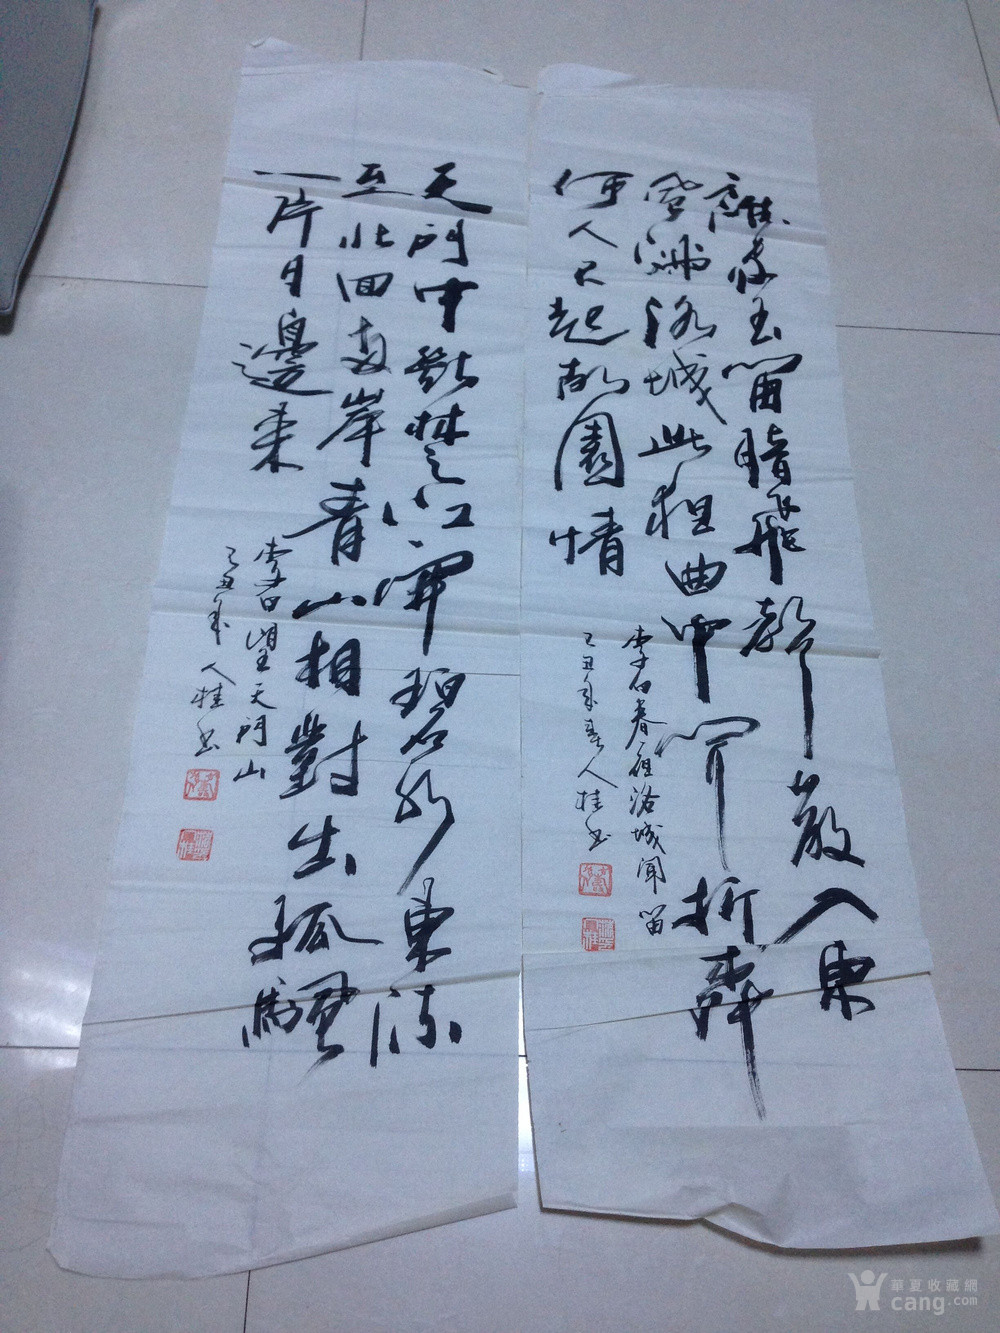 誰家玉笛暗飛聲散入東
風滿洛城此夜曲中聞折柳
何人不起故園情
李白春夜洛城聞笛
己丑年春人桂书
天門中斷楚江開碧水東流
至此回兩岸青山相對出孤帆
一片日邊來
李白望天門山
己丑年人桂书
華夏收藏網
cang.com